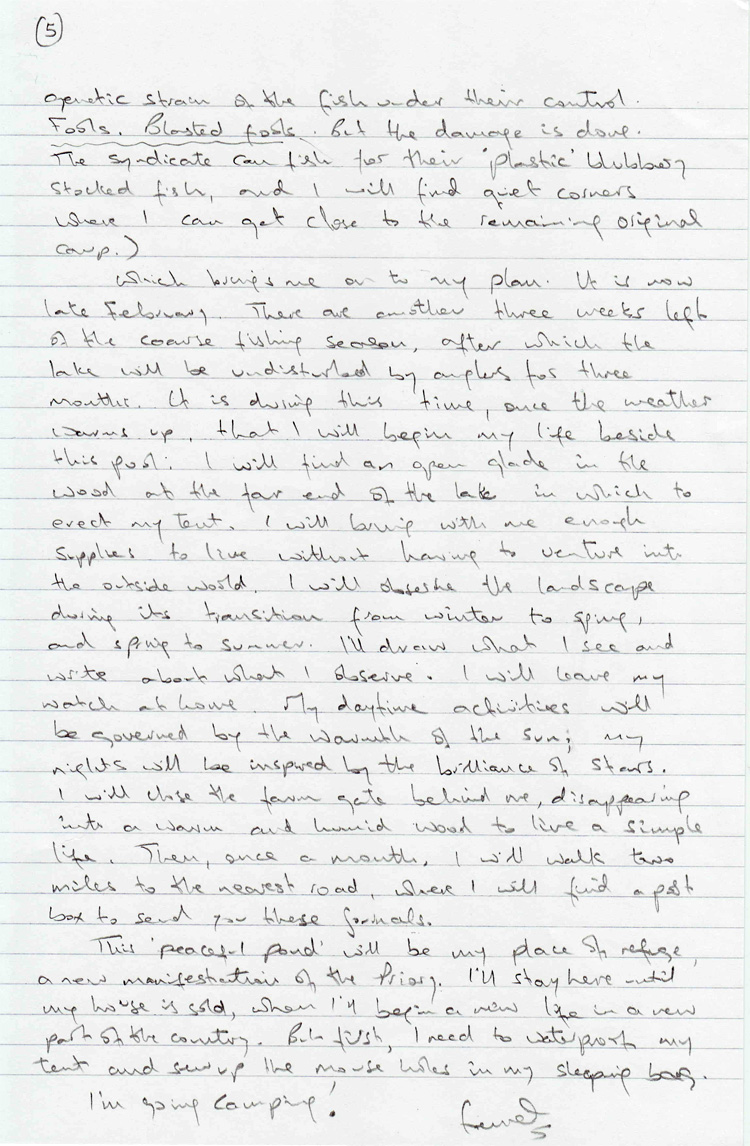 (5)
genetic strain of the fish under their control.
Fools. Blasted fools. But the damage is done.
The syndicate can fish for their 'plastic' blubbery
stocked fish, and I will find quiet corners
where I can get close to the remaining original
carp.)
Which brings me on to my plan. It is now
late February. There are another three weeks left
of the coarse fishing season, after which the
lake will be undisturbed by anglers for three
months. It is during this time, once the weather
warms up, that I will begin my life beside
this pool. I will find an open glade in the
wood at the far end of the lake in which to
erect my tent. I will bring with me enough
supplies to live without having to venture into
the outside world. I will observe the landscape
during its transition from winter to spring,
and spring to summer. I'll draw what I see and
write about what I observe. I will leave my
watch at home. My daytime activities will
be governed by the warmth of the sun; my
nights will be inspired by the brilliance of stars.
I will close the farm gate behind me, disappearing
into a warm and humid wood to live a simple
life. Then, once a month, I will walk two
miles to the nearest road, where I will find a post
box to send you these journals.
This 'peaceful pond' will be my place of refuge,
a new manifestation of the Priory. I'll stay here until
my house is sold, when I'll begin a new life in a new
part of the country. But first, I need to waterproof my
tent and sew up the mouse holes in my sleeping bag.
I'm going camping!